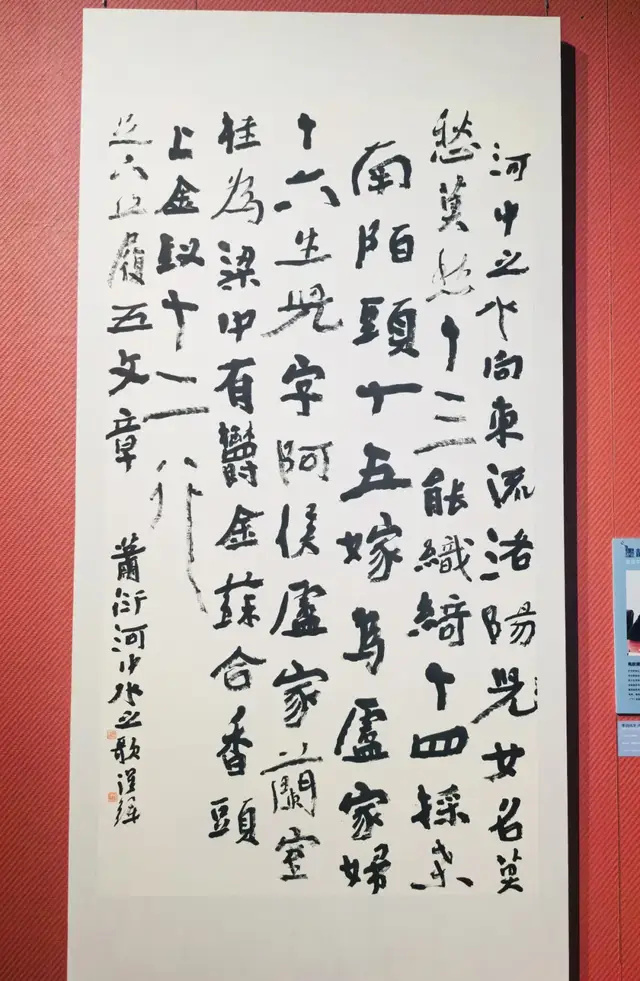 河中之水向東流洛陽兒女名莫
愁莫愁十三能織綺十四採桑
南陌頭十五嫁為盧家婦
十六生兒字阿侯盧家蘭室
桂為梁中有鬱金蘇合香頭
上金釵十二行
足下丝履五文章
蕭衍河中水之歌